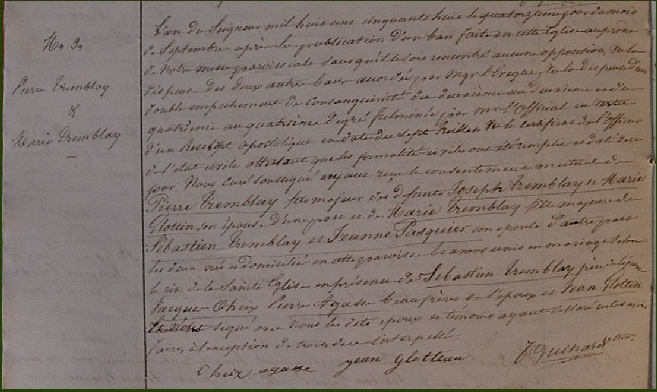 No 9.
Pierre Tremblay
&
Marie Tremblay
L'an du Seigneur mil huit cent cinquante huit le quatorzieme jour du mois
de Septembre après la publication d'un ban faite en cette Eglise au prône
de Notre messe paroissiale sans qu'il se soit rencontré aucune opposition, Vu la
dispense des deux autres bans accordée par Mgr l'Evêque, Vu la dispense d'un
double empechement de consanguinité du deuxieme au deuxieme et du
quatrieme au quatrieme degré fulminée par mr l'Official en
d'un Rescrit apostolique en date du sept Juillet Vu le certificat de l'Officier
de l'etat civile attestant que les formalités civiles ont été remplies en date de ce
jour. Nous Curé soussigné avons recu le consentement mutuel de
Pierre Tremblay fils majeur des defunts Joseph Tremblay et Marie
Glotin ses épouse D'une part et de Marie Tremblay fille majeure de
Sébastien Tremblay et Jeanne Pasquier son epouse d'autre part
les deux nés et domiciliés en cette paroisse. les avons unis en mariage selon
le rit de la Sainte Eglise en presence de Sébastien Tremblay père de
Jacque Choix Pierre Agasse Beaufrères de l'epoux et Jean Glotteau
signé avec nous les dits epoux et temoins ayant
faire, à l'exception de trois de ce interpellé
Choix agasse jean glotteau